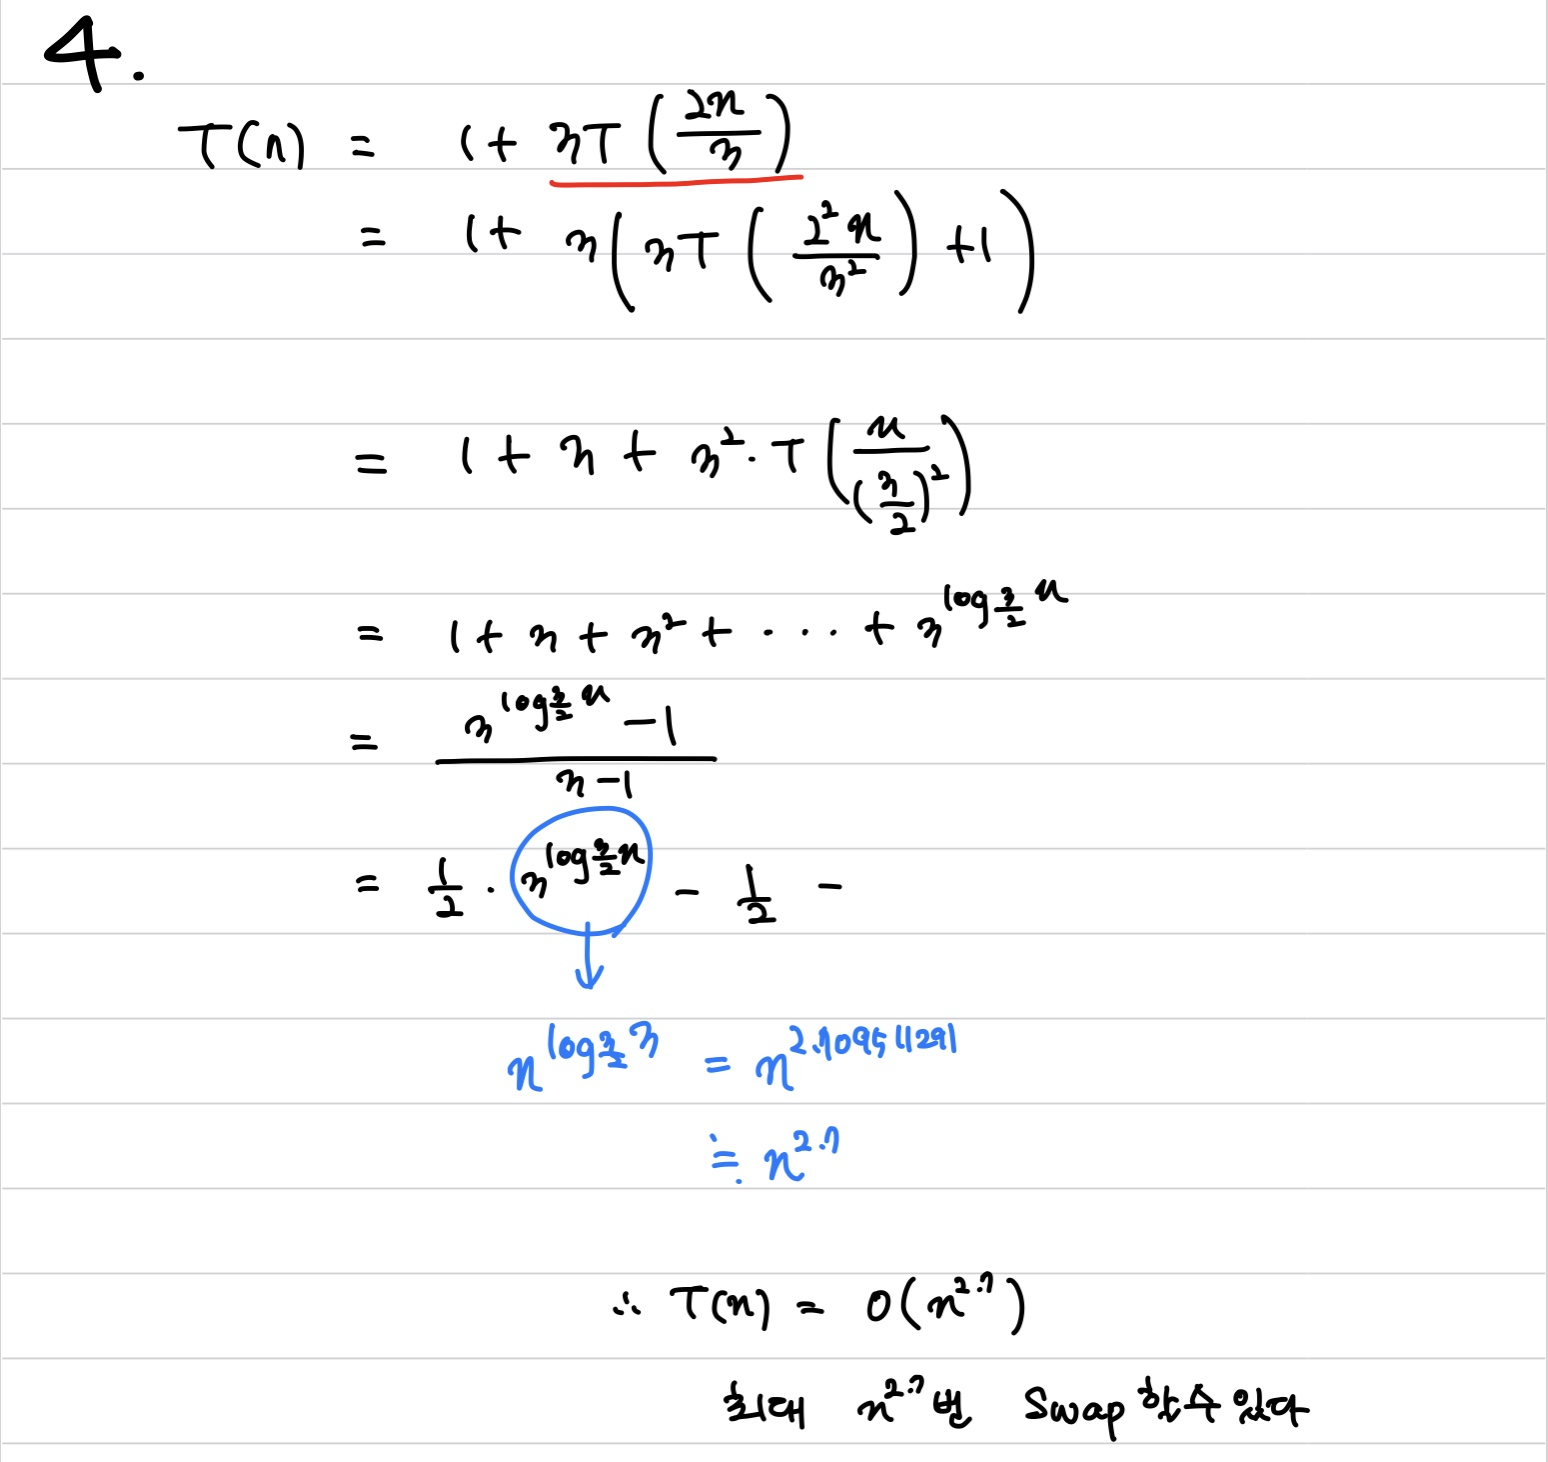 4.
T(n) = 1 + 3T(2n/3)
= 1 + 3(3T(2²n/3²) + 1)
= 1 + 3 + 3²·T(n/(3/2)²)
= 1 + 3 + 3² + ···· + 3^(log_{3/2} n)
= (3^(log_{3/2} n) − 1)/(3 − 1)
= 1/2 · 3^(log_{3/2} n) − 1/2 −
↓
n^(log_{3/2} 3) = n^2.709511291
≒ n^2.7
∴ T(n) = O(n^2.7)
최대 n^2.7번 Swap할 수 있다